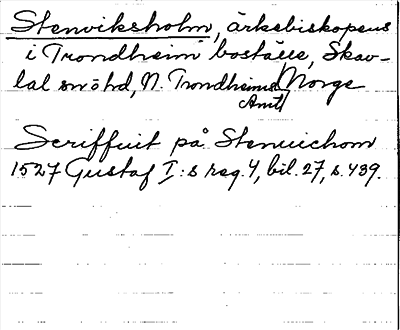 Stenviksholm, ärkebiskopens
i Trondheim boställe, Skav-
lal snöhd, N. Trondheims Norge
Amt
Scriffuit på Stenuichom
1527 Gustaf I:s reg. 4, bil. 27, s. 439.